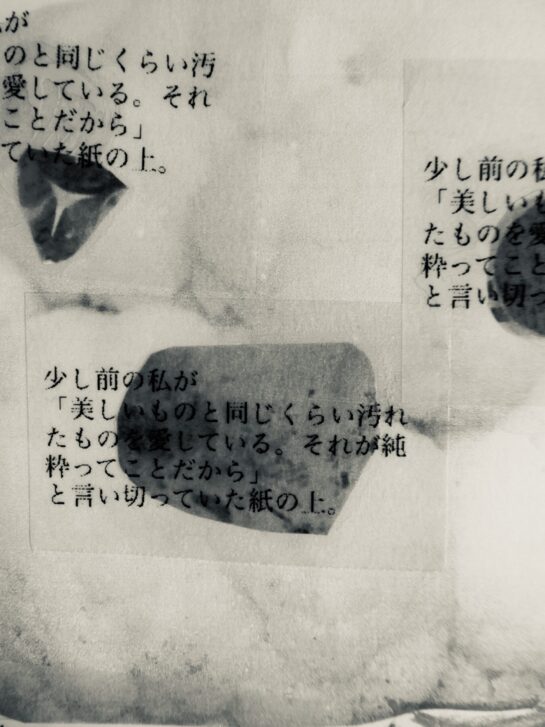 が
のと同じくらい汚
愛している。それ
ことだから」
ていた紙の上。
少し前の私
「美しいも
たものを愛
粋ってこと
と言い切っ
少し前の私が
「美しいものと同じくらい汚れ
たものを愛している。それが純
粋ってことだから」
と言い切っていた紙の上。